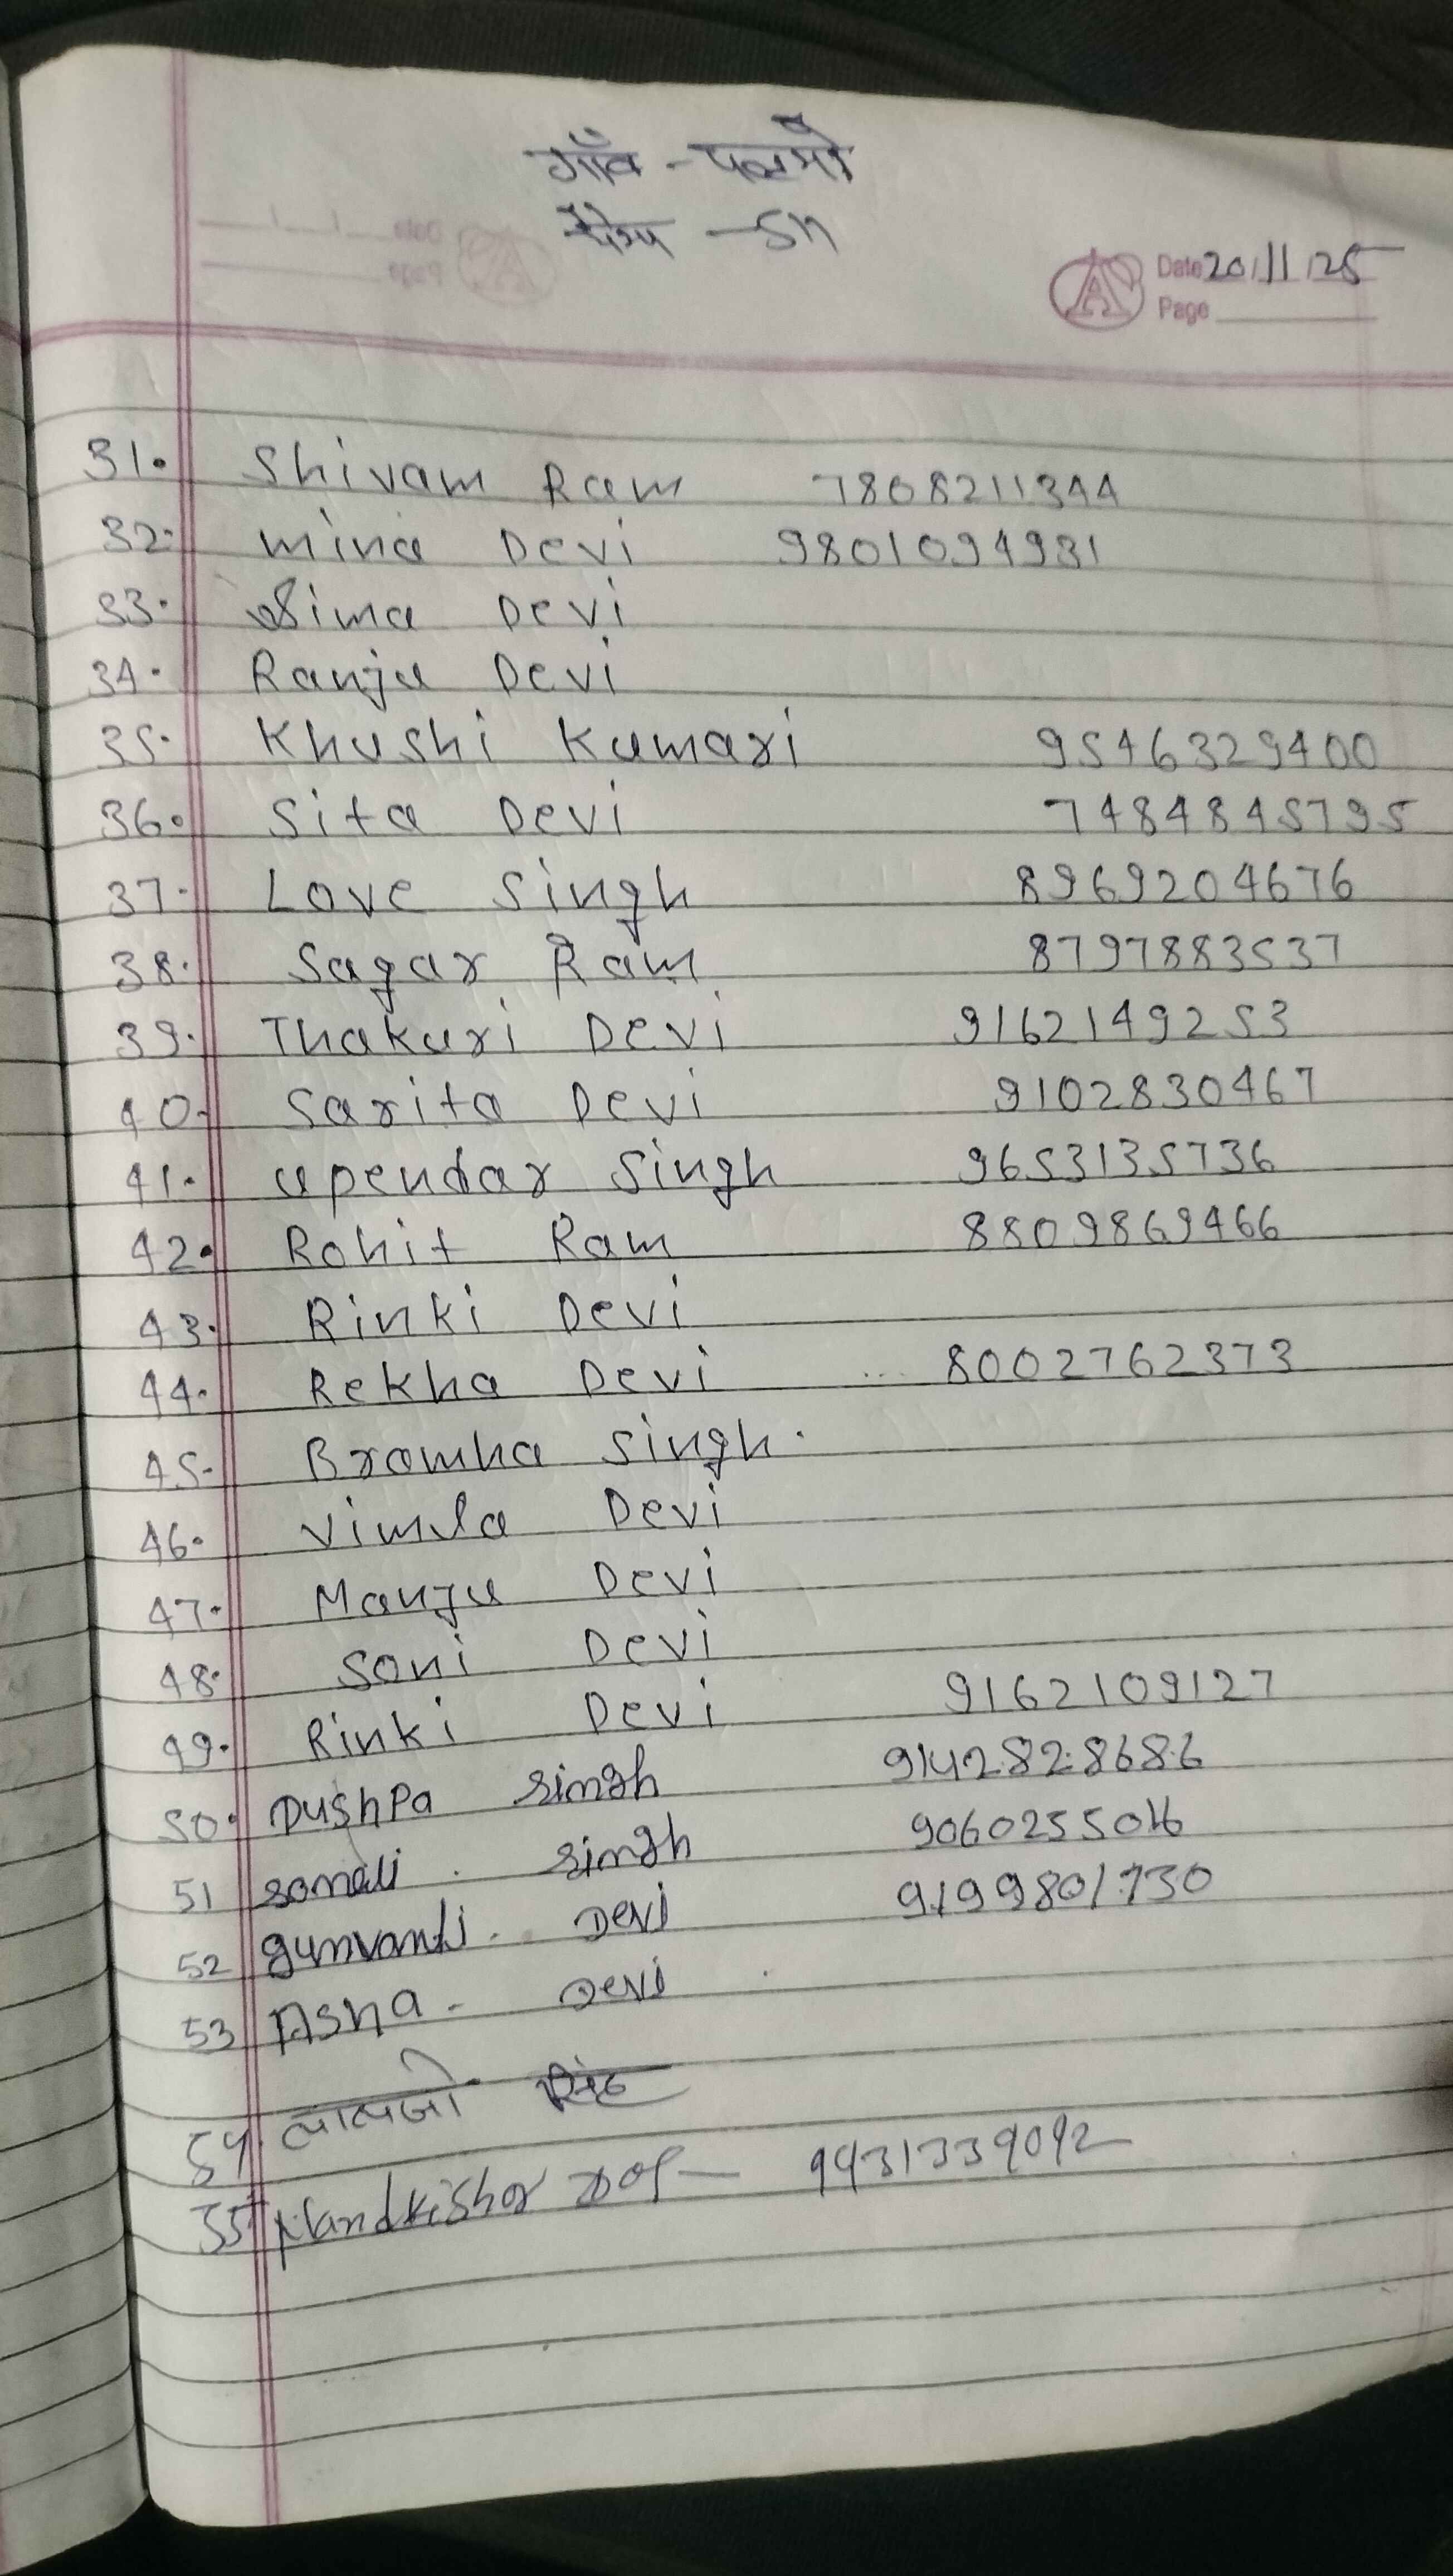 गाँव - पलमो
Date 20/11/25
Page
31. Shivam Ram 7808211344
32. Mina Devi 9801094931
33. Sima Devi
34. Ranju Devi
35. Khushi Kumari 9546329400
36. Sita Devi 7484845795
37. Love Singh 8969204676
38. Sagar Ram 8797883537
39. Thakuri Devi 9162149253
40. Sarita Devi 9102830467
41. Upendar Singh 9653135736
42. Rohit Ram 8809869466
43. Rinki Devi
44. Rekha Devi 8002762373
45. Bramha Singh.
46. Vimla Devi
47. Manju Devi
48. Soni Devi
49. Rinki Devi 9162109127
50. Pushpa Singh 9142828686
51 Sonali Singh
52 gunvanti. Devi 9199801730
53 Asha - Devi
54. सिंह
55 Nandkishor - 9431339092